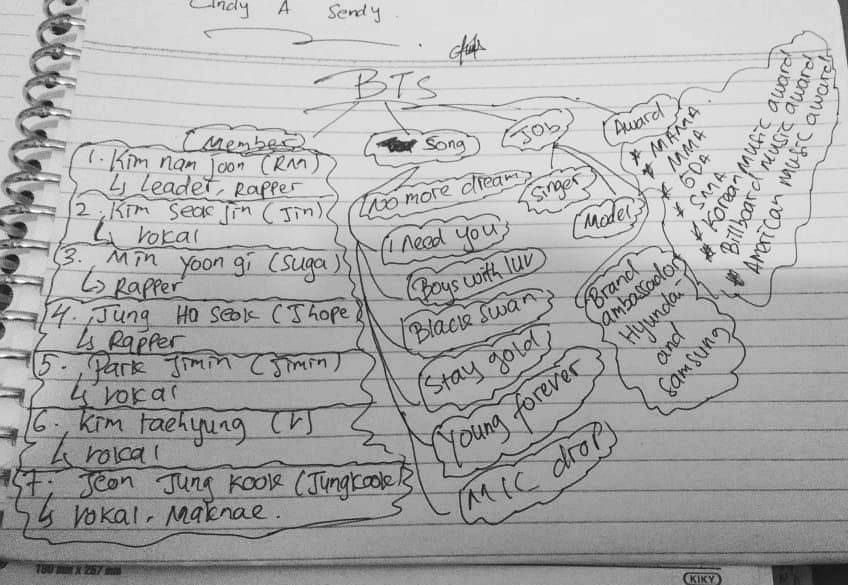 Cindy A Sendy.
BTS
Member
1. Kim nam joon (RM)
↳ Leader, Rapper
2. Kim Seok jin (Jin)
↳ vokal
3. Min yoon gi (Suga)
↳ Rapper
4. Jung Ho Seok (Jhope)
↳ Rapper
5. Park Jimin (Jimin)
↳ vokal
6. Kim taehyung (V)
↳ vokal
7. Jeon Jung Kook (Jungkook)
↳ vokal, Maknae.
Song
No more dream
I need you
Boys with luv
Black swan
Stay gold
Young forever
MIC drop
JOB
Singer
Model
Brand
ambassador
Hyundai
and
samsung
Award
* MAMA
* MMA
* GDA
* SMA
* Korean Music award
* Billboard music award
* American music award
190 mm x 257 mm
KIKY